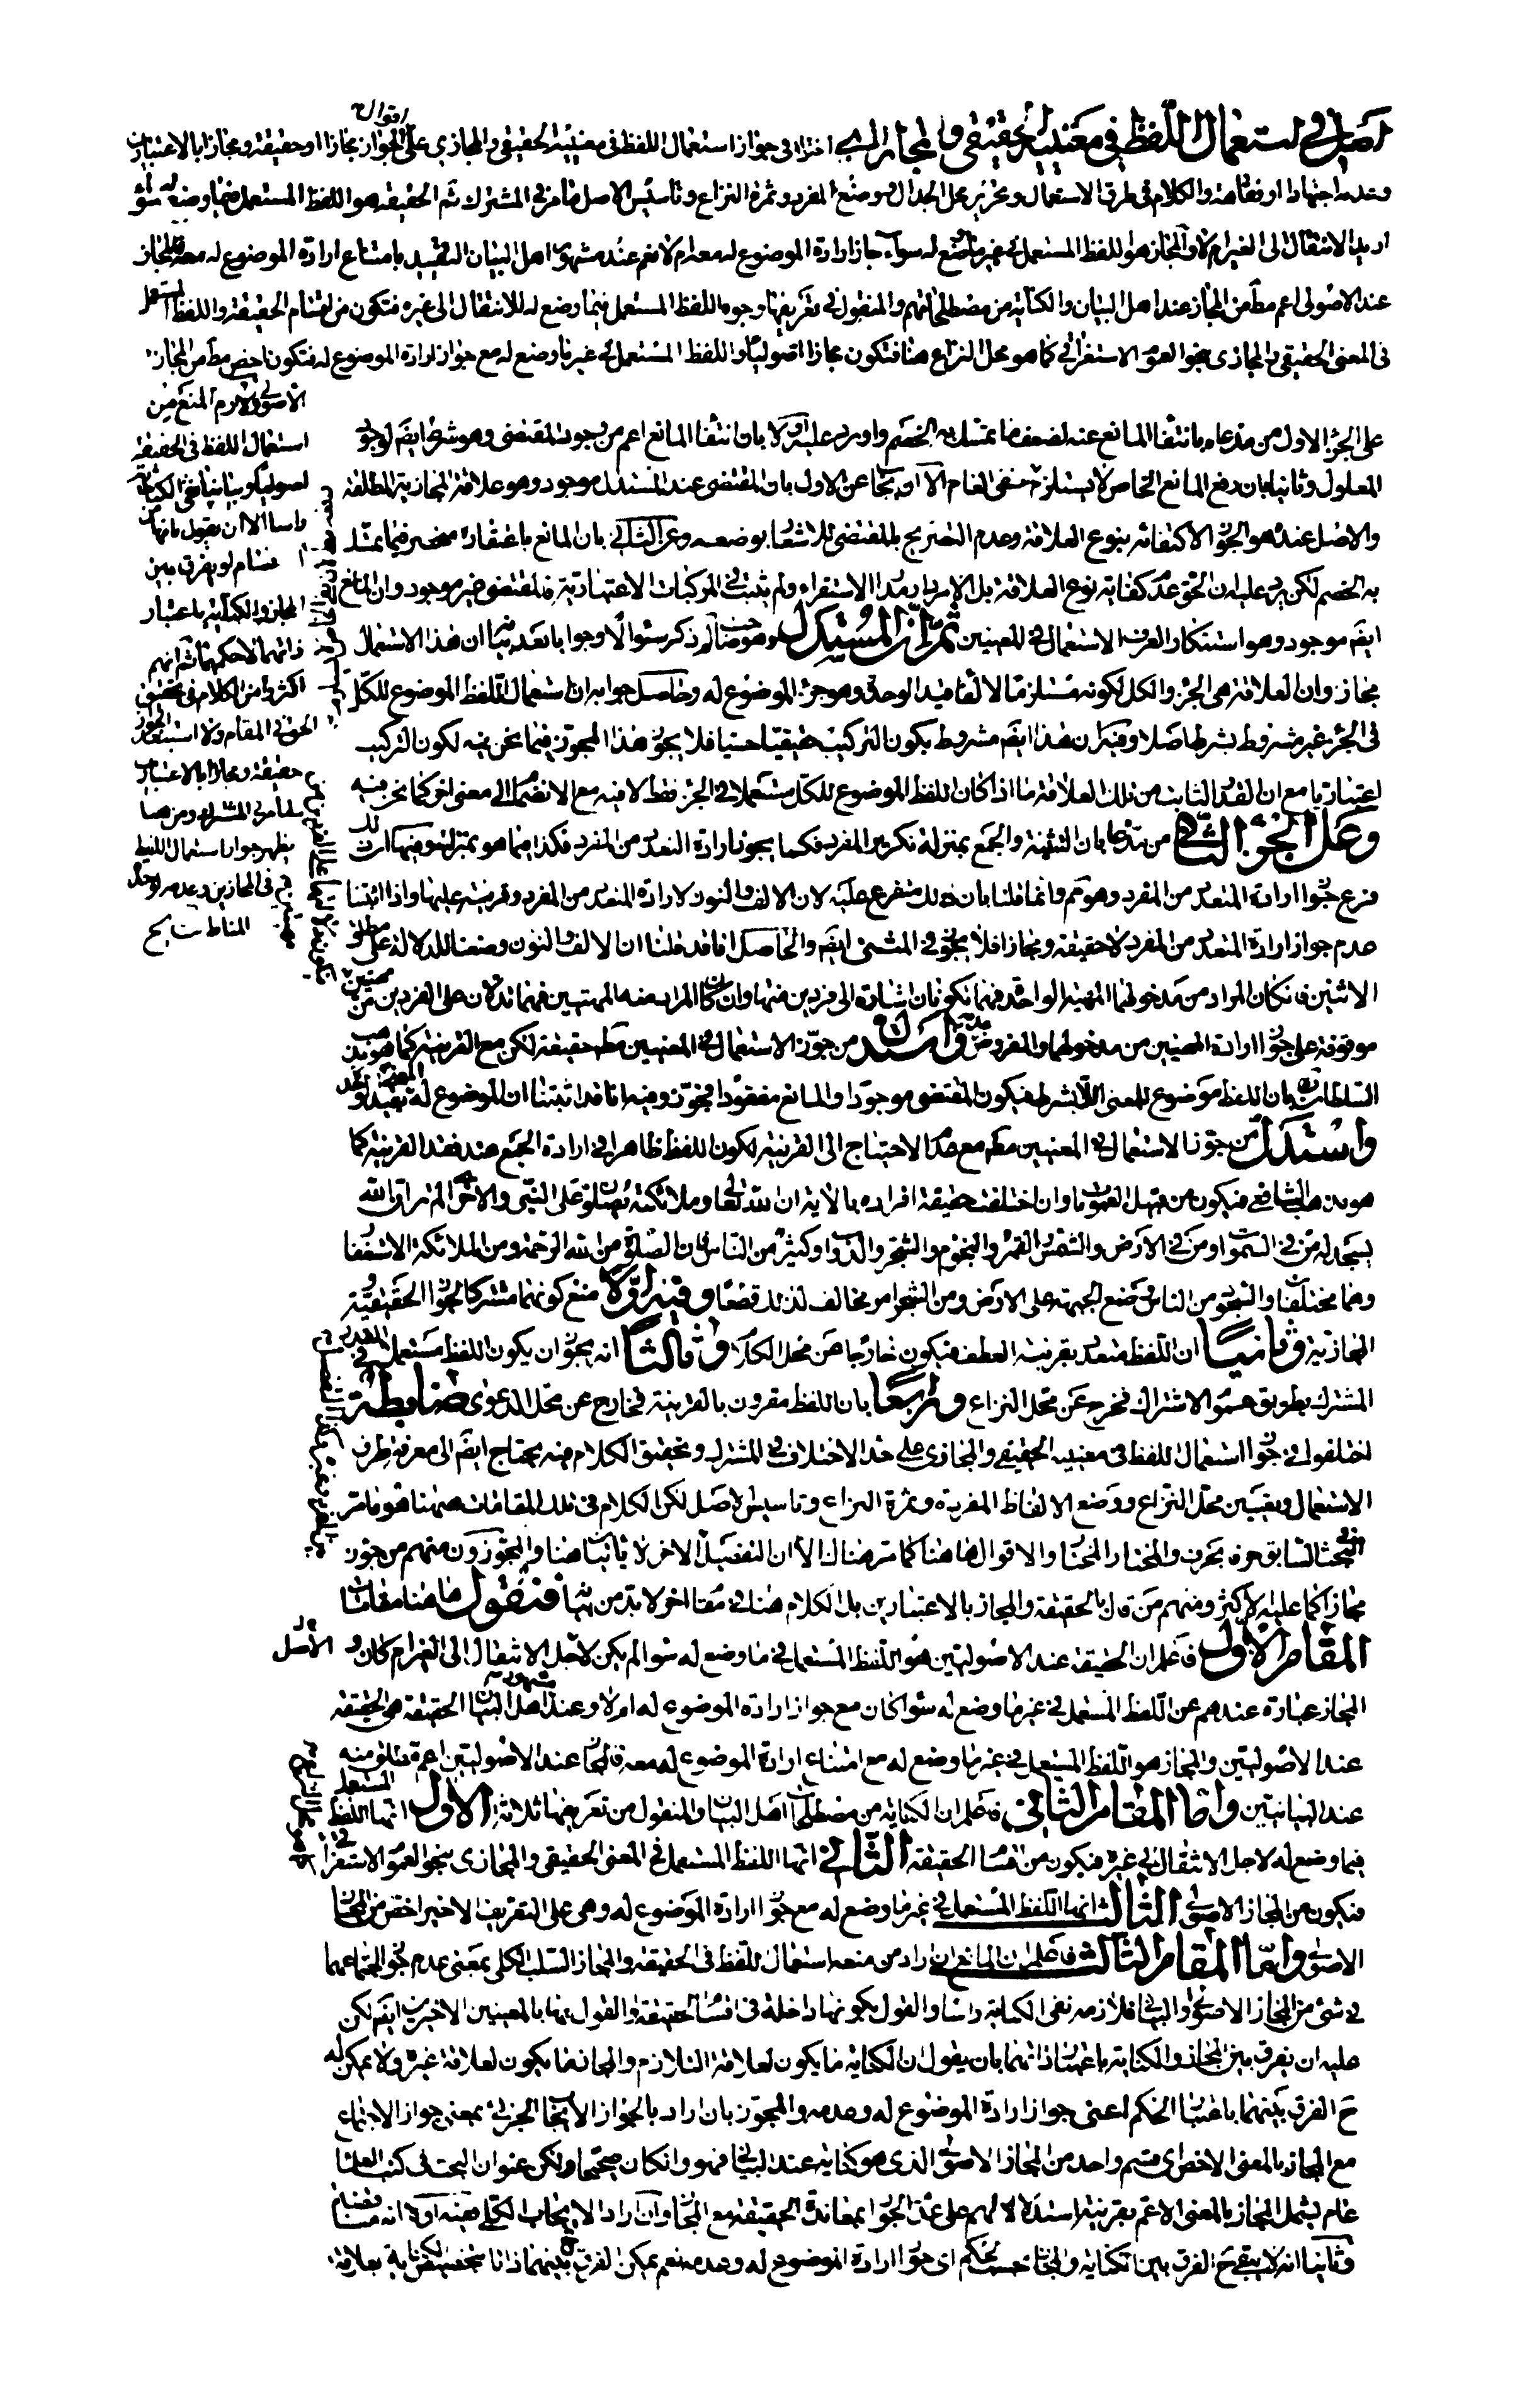 أصل في استعمال اللفظ في معنييه الحقيقي والمجازي اختلفوا في جواز استعمال اللفظ في معنييه الحقيقي والمجازي على اقوال الجواز مجازا او حقيقة ومجازا بالاعتبارين
وعدمه اجتهادا او فقاهة والكلام في طرق الاستعمال وتحرير محل الجدال ووضع المفرد وثمرة النزاع وتاسيس الاصل مامر في المشترك ثم الحقيقة هو اللفظ المستعمل فيما وضع له سواء
اريد الانتقال الى الغير ام لا والمجاز هو اللفظ المستعمل في غير ما وضع له سواء جاز ارادة الموضوع له معه ام لا نعم عند مشهور اهل البيان التقييد بامتناع ارادة الموضوع له معه فالمجاز
عند الاصولي اعم مط من المجاز عند اهل البيان والكناية من مصطلحاتهم والمنقول في تعريفها وجوه اللفظ المستعمل فيما وضع له للانتقال الى غيره فتكون من اقسام الحقيقة واللفظ المستعمل
في المعنى الحقيقي والمجازي بنحو العموم الاستغراقي كما هو محل النزاع هنا فتكون مجازا اصوليا واللفظ المستعمل في غير ما وضع له مع جواز ارادة الموضوع له فتكون اخص مط من المجاز
الاصولي ولازم المنع من
استعمال اللفظ في الحقيقة
اصوليا وبيانيا نفي الكناية
راسا الا ان يقول بانها من
اقسام لو يفرق بين
المجاز والكناية باعتبار
ذاتهما لا حكمهما ثم انهم
اكثروا من الكلام في تحقيق
الحق في المقام ولا استبعد الجواز
حقيقة ومجازا بالاعتبارين
كما مر في المشترك ومن هنا
يظهر جواز استعمال اللفظ
في المجازين وعدمه لوحدة
المناط
على الجزء الاول من مدعاه بانتفاء المانع عنه لضعف ما تمسك به الخصم واورد عليه اولا بان انتفاء المانع اعم من وجود المقتضي وهو شرط ايضا لوجود
المعلول وثانيا بان رفع المانع الخاص لا يستلزم نفي العام الا ان يجاب عن الاول بان المقتضي عند المستدل موجود وهو علاقة المجازية المطلقة
والاصل عنده هو الجواز لاكتفائه بنوع العلاقة وعدم التصريح بالمقتضي للاشعار بوضعه وعن الثاني بان المانع باعتقاده منحصر فيما تمسك
به الخصم لكن يرد عليه ان الحق عدم كفاية نوع العلاقة بل الامر دائر مدار الاستقراء ولم يثبت في المركبات الاعتبارية فالمقتضي غير موجود وان المانع
ايضا موجود وهو استنكار العرف الاستعمال في المعنيين ثم ان المستدل وهو صاحب لم ذكر سؤالا وجوابا بعد بيان ان هذا الاستعمال
مجاز وان العلاقة هي الجزء والكل لكونه مستلزما لالقاء قيد الوحدة وهو جزء الموضوع له وحاصل جوابه ان استعمال اللفظ الموضوع للكل
في الجزء غير مشروط بشرط اصلا وفيه ان هذا ايضا مشروط بكون التركيب حقيقيا حسيا فلا يجوز هذا التجوز فيما نحن فيه لكون التركيب
اعتباريا مع ان القدر الثابت من تلك العلاقة ما اذا كان اللفظ الموضوع للكل مستعملا في الجزء فقط لا فيه مع الانضمام الى معنى اخر كما نحن فيه
وعلى الجزء الثاني من مدعاه بان التثنية والجمع بمنزلة تكرير المفرد فكما يجوز ارادة التعدد من المفرد فكذا فيما هو بمنزلته وفيه ان ذلك
فرع جواز ارادة المتعدد من المفرد وهو مم وانما قلنا بان ذلك متفرع عليه لان الالف والنون لارادة المتعدد من المفرد وقرينة عليها واذا اثبتنا
عدم جواز ارادة المتعدد من المفرد لا حقيقة ومجازا فلا يجوز في المثنى ايضا والحاصل انا قد قلنا ان الالف والنون وضعنا للدلالة على مطلق
الاثنين فان كان المراد من مدخولهما المهية الواحدة فهما تكونان اشارة الى فردين منها وان كان المراد منه المهيتين فهما تدلان على الفردين من مهيتين
موقوفة على جواز ارادة المعنيين من مدخولهما والمفروض عدمه واستدل من جوز الاستعمال في المعنيين مط حقيقة لكن مع القرينة كما هو مذهب
السلطان بان اللفظ موضوع للمعنى اللابشرط فيكون المقتضي موجودا والمانع مفقودا فيجوز وفيه انا قد اثبتنا ان الموضوع له المعنى بقيد الوحدة
واستدل من جوز الاستعمال في المعنيين مط مع عدم الاحتياج الى القرينة لكون اللفظ ظاهرا في ارادة الجميع عند فقد القرينة كما
هو مذهب الشافعي فيكون من قبيل العموم وان اختلفت حقيقة افراده بالاية ان الله وملائكته يصلون على النبي والاخرى الم تر ان الله
يسجد له من في السموات ومن في الارض والشمس والقمر والنجوم والشجر والدواب وكثير من الناس فان الصلوة من الله الرحمة ومن الملائكة الاستغفار
وهما مختلفان والسجود من الناس وضع الجبهة على الارض ومن الشجر امر مخالف لذلك قطعا وفيه اولا منع كونهما مشتركا لجواز الحقيقة و
المجازية وثانيا ان اللفظ متعدد بقرينة العطف فيكون خارجا عن محل الكلام وثالثا انه يجوز ان يكون اللفظ مستعملا في القدر
المشترك بطريق عموم الاشتراك فخرج عن محل النزاع ورابعا بان اللفظ مقرون بالقرينة فخارج عن محل الدعوى ضابطة
اختلفوا في جواز استعمال اللفظ في معنييه الحقيقي والمجازي على حد الاختلاف في المشترك وتحقيق الكلام فيه يحتاج ايضا الى معرفة طرق
الاستعمال وتعيين محل النزاع ووضع الالفاظ المفردة وثمرة النزاع وتاسيس الاصل لكن الكلام في تلك المقامات هيهنا هو ما مر
في البحث السابق حرف بحرف والمختار المختار والاقوال هاهنا كما مر هناك الا ان التفصيل الاخر لا يأتي هنا والمجوزون منهم من جوز
مجازا كما عليه الاكثر ومنهم من قال بالحقيقة والمجاز بالاعتبارين بل الكلام هنا في مقام اخر لا بد من بيانها فنقول هاهنا مقامات
المقام الاول فاعلم ان الحقيقة عند الاصوليين هو اللفظ المستعمل في ما وضع له سواء لم يكن لاجل الانتقال الى الغير ام كان و الاصل
المجاز عبارة عندهم عن اللفظ المستعمل في غير ما وضع له سواء كان مع جواز ارادة الموضوع له ام لا وعند مشهور اهل البيان الحقيقة هي الحقيقة
عند الاصوليين والمجاز هو اللفظ المستعمل في غير ما وضع له مع امتناع ارادة الموضوع له معه فالمجاز عند الاصوليين اعم مطلقا منه
عند البيانيين واما المقام الثاني فاعلم ان الكناية من مصطلحات اهل البيان والمنقول من تعريفها ثلاثة الاول انها اللفظ المستعمل
فيما وضع له لاجل الانتقال الى غيره فيكون من اقسام الحقيقة الثاني انها اللفظ المستعمل في المعنى الحقيقي والمجازي بنحو العموم الاستغراقي
فيكون من المجاز الاصولي الثالث انها اللفظ المستعمل في غير ما وضع له مع جواز ارادة الموضوع له وهي على التعريف الاخير اخص من المجاز
الاصولي واما المقام الثالث فاعلم ان المانع ان اراد من منعه استعمال اللفظ في الحقيقة والمجاز السلب الكلي بمعنى عدم جواز اجتماعهما
في شئ من المجاز الاصولي والبياني فلازمه نفي الكناية راسا والقول بكونها داخلة في اقسام الحقيقة والقول بها بالمعنيين الاخيرين ايضا لكن
عليه ان يفرق بين المجاز والكناية باعتبار ذاتهما بان يقول ان الكناية ما يكون لعلاقة التلازم والمجاز ما يكون لعلاقة غيره ولا يمكن له
ح الفرق بينهما باعتبار الحكم اعني جواز ارادة الموضوع له وعدمه والمجوز بان اراد بالجواز الايجاب الجزئي بمعنى جواز الاجتماع
مع المجاز بالمعنى الاخص اي قسم واحد من المجاز الاصولي الذي هو كناية عند البياني فهو وان كان صحيحا ولكن عنوان البحث في كتب العلماء
عام يشمل المجاز بالمعنى الاعم بقرينة استدلالهم على عدم الجواز بمعاندة الحقيقة مع المجاز وان اراد الايجاب الكلي ففيه اولا انه
وثانيا انه لا يبقى ح الفرق بين الكناية والمجاز حسب الحكم اي جواز ارادة الموضوع له وعدمه نعم يمكن الفرق بينهما ذاتا بتخصيص الكناية بعلاقة